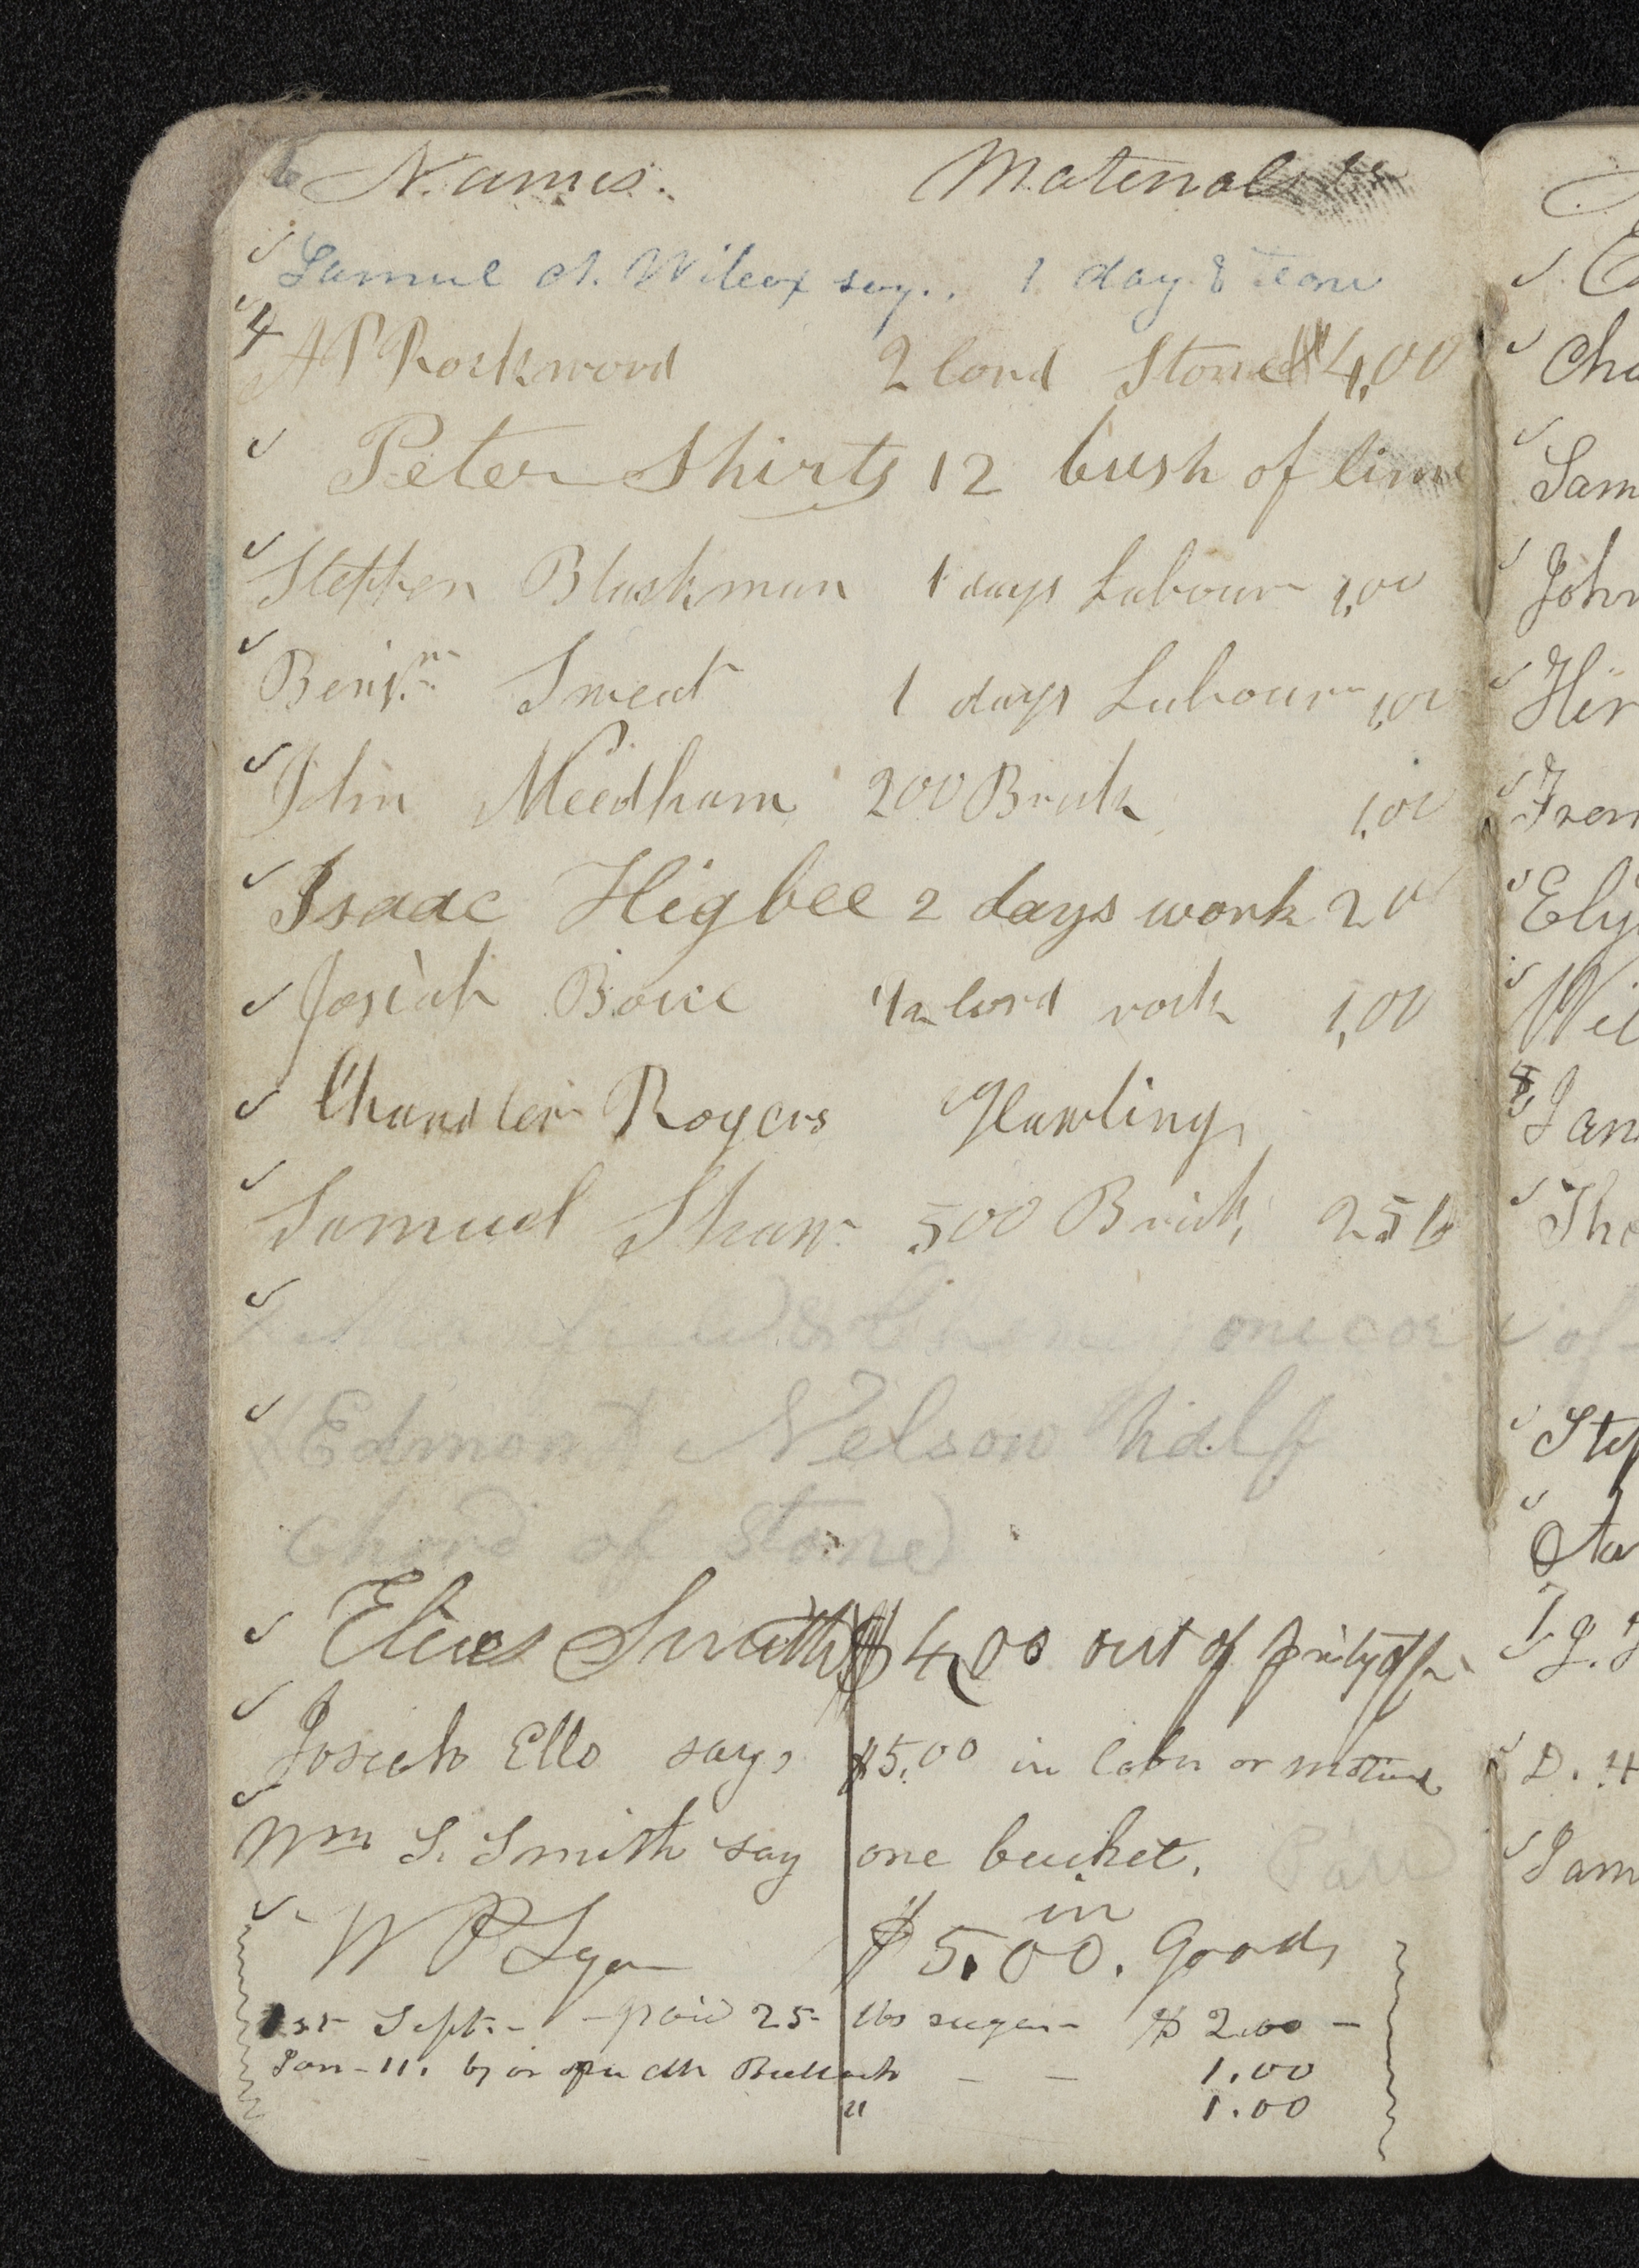 6 Names. Materials &c
Samuel A. Wilcox say.. 1 day & team
4 A P Rockwood 2 cord Stone $4,00
Peter Shirts 12 bush of lime
Stephen Blackman 1 days Labour 1,00
Benjmn Sweat 1 days Labour 1,00
John Needham 200 Brick 1,00
Isaac Higbee 2 days work 2 0
Josiah Boice 1/2 cord rock 1,00
Chandler Rogers Hawling
Samuel Shaw 500 Brick, 2 5
one cor of
Edmond Nelson half
Chord of Stone
Elias Smith $4,00 out of
Josiah Ells says $5.00 in labor or
Wm S. Smith say one bucket. Paid
in
W P Lyon $5.00. Goods
1st Sept. - paid 25 lbs sugar - $2.00 -
Jan - 11. by Bullock - - 1.00
" 1.00
Cha
Sam
John
Hir
Ely
Wil
Jam
Tho
Step
D. H
Jam